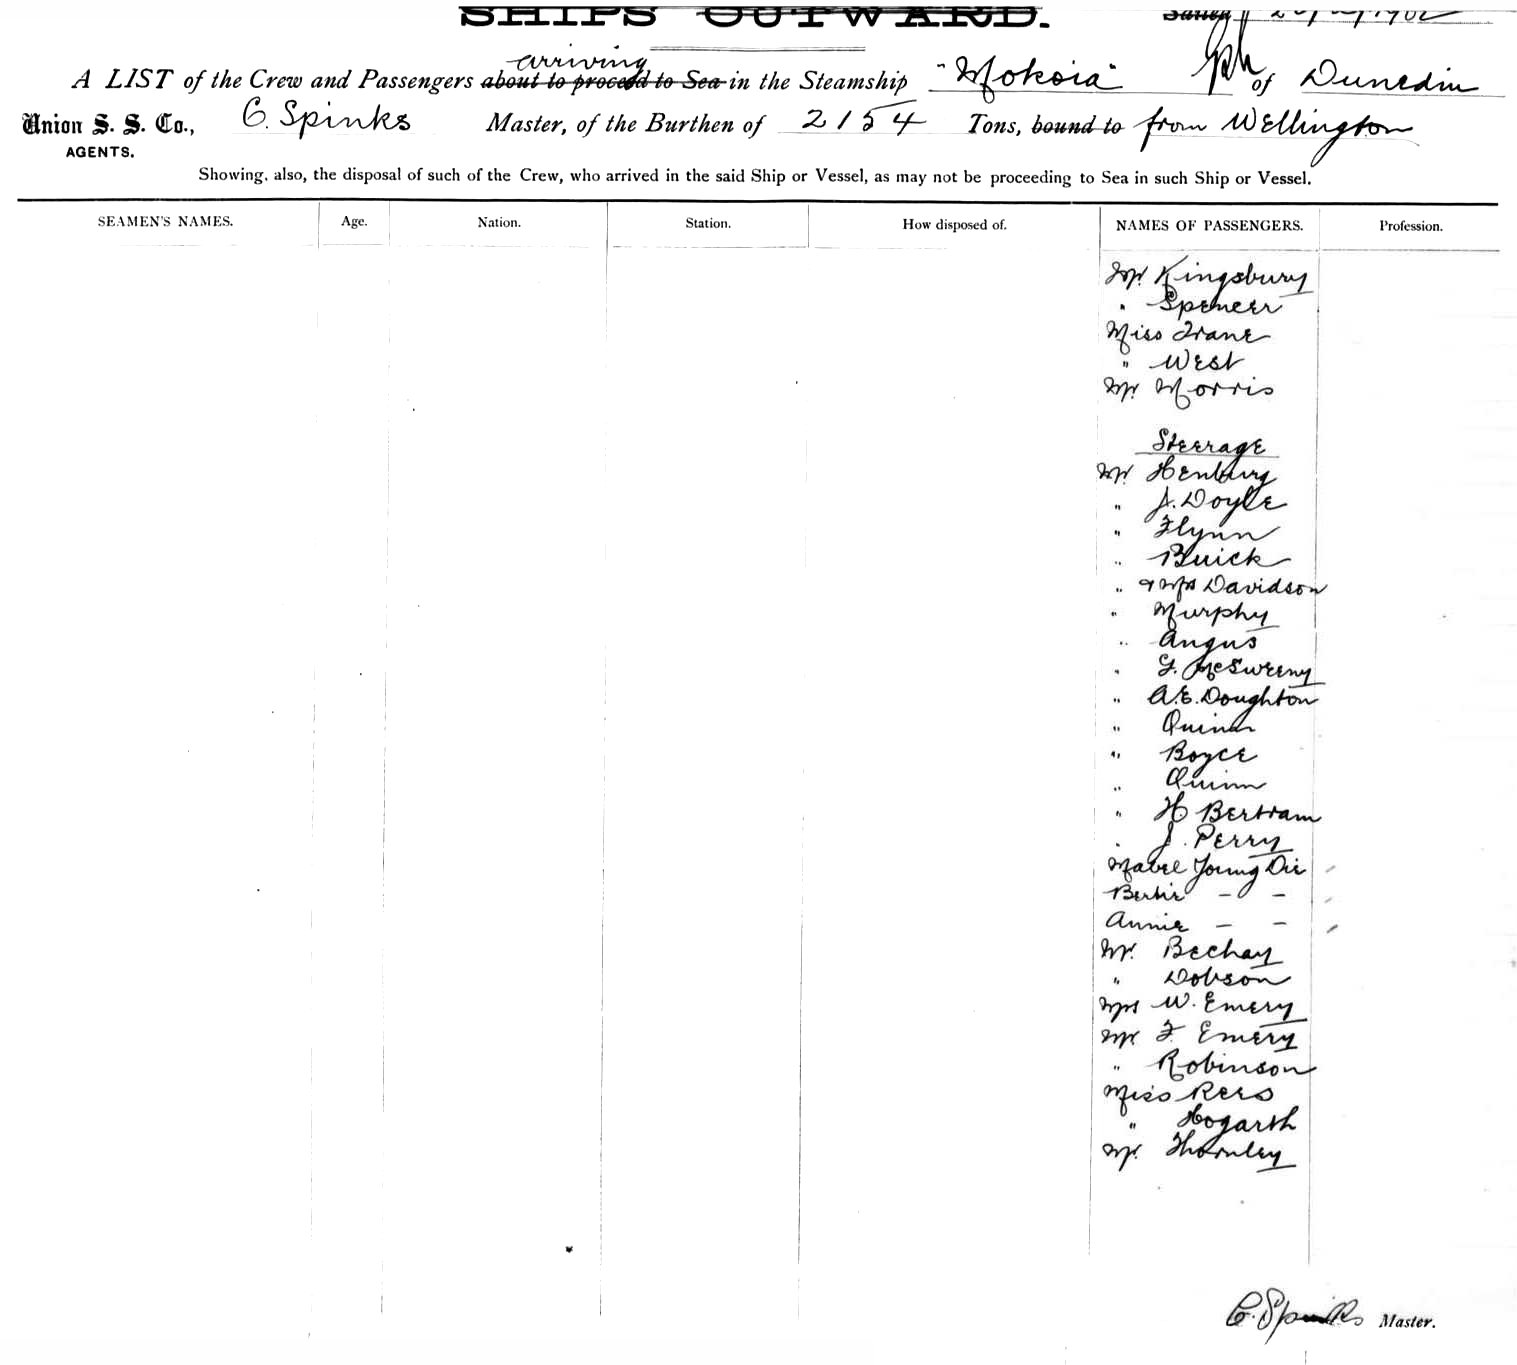 SHIPS OUTWARD.
arriving
A LIST of the Crew and Passengers about to proceed to Sea in the Steamship "Mokoia" of Dunedin
Union S. S. Co., C. Spinks Master, of the Burthen of 2154 Tons, bound to from Wellington
AGENTS.
Showing, also, the disposal of such of the Crew, who arrived in the said Ship or Vessel, as may not be proceeding to Sea in such Ship or Vessel.
SEAMEN'S NAMES. Age. Nation. Station. How disposed of. NAMES OF PASSENGERS. Profession.
Mr. Kingsbury
" Spencer
Miss Trane
" West
Mr. Morris
Steerage
Mr. Henburg
" J. Doyle
" Flynn
" Buick
" & Mrs Davidson
" Murphy
" Angus
" G. McSweeny
" A.E. Doughton
" Quinn
" Boyce
" Quinn
" H Bertram
" J. Perry
Mabel Young Div
Bertie - -
Annie - -
Mr. Bechay
" Dobson
Mrs W. Emery
Mr F. Emery
" Robinson
Miss Rees
" Hogarth
Mr. Thornley
C. Spinks Master.